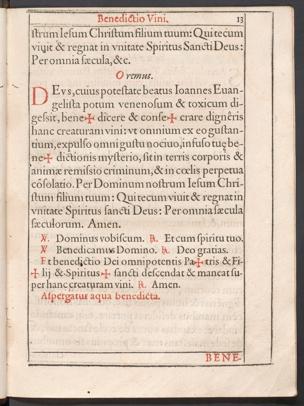 Benedictio Vini. 13
strum Iesum Christum filium tuum: Qui tecum
viuit & regnat in vnitate Spiritus Sancti Deus:
Per omnia sæcula, &c.
Oremus.
DEvs, cuius potestate beatus Ioannes Euan-
gelista potum venenosum & toxicum di-
gessit, bene✠ dicere & conse✠ crare digneris
hanc creaturam vini: vt omnium ex eo gustan-
tium, expulso omni gustu nociuo, infuso tuę be-
ne✠ dictionis mysterio, sit in terris corporis &
animæ remissio criminum, & in cœlis perpetua
cósolatio. Per Dominum nostrum Iesum Chri-
stum filium tuum: Qui tecum viuit & regnat in
vnitate Spiritus sancti Deus: Per omnia sæcula
sæculorum. Amen.
℣. Dominus vobiscum. ℟. Et cum spiritu tuo.
℣. Benedicamus Domino. ℟. Deo gratias.
Et benedictio Dei omnipotentis Pa✠tris & Fi-
✠ lij & Spiritus ✠ sancti descendat & maneat su-
per hanc creaturam vini. ℟. Amen.
Aspergatur aqua benedicta.
BENE-